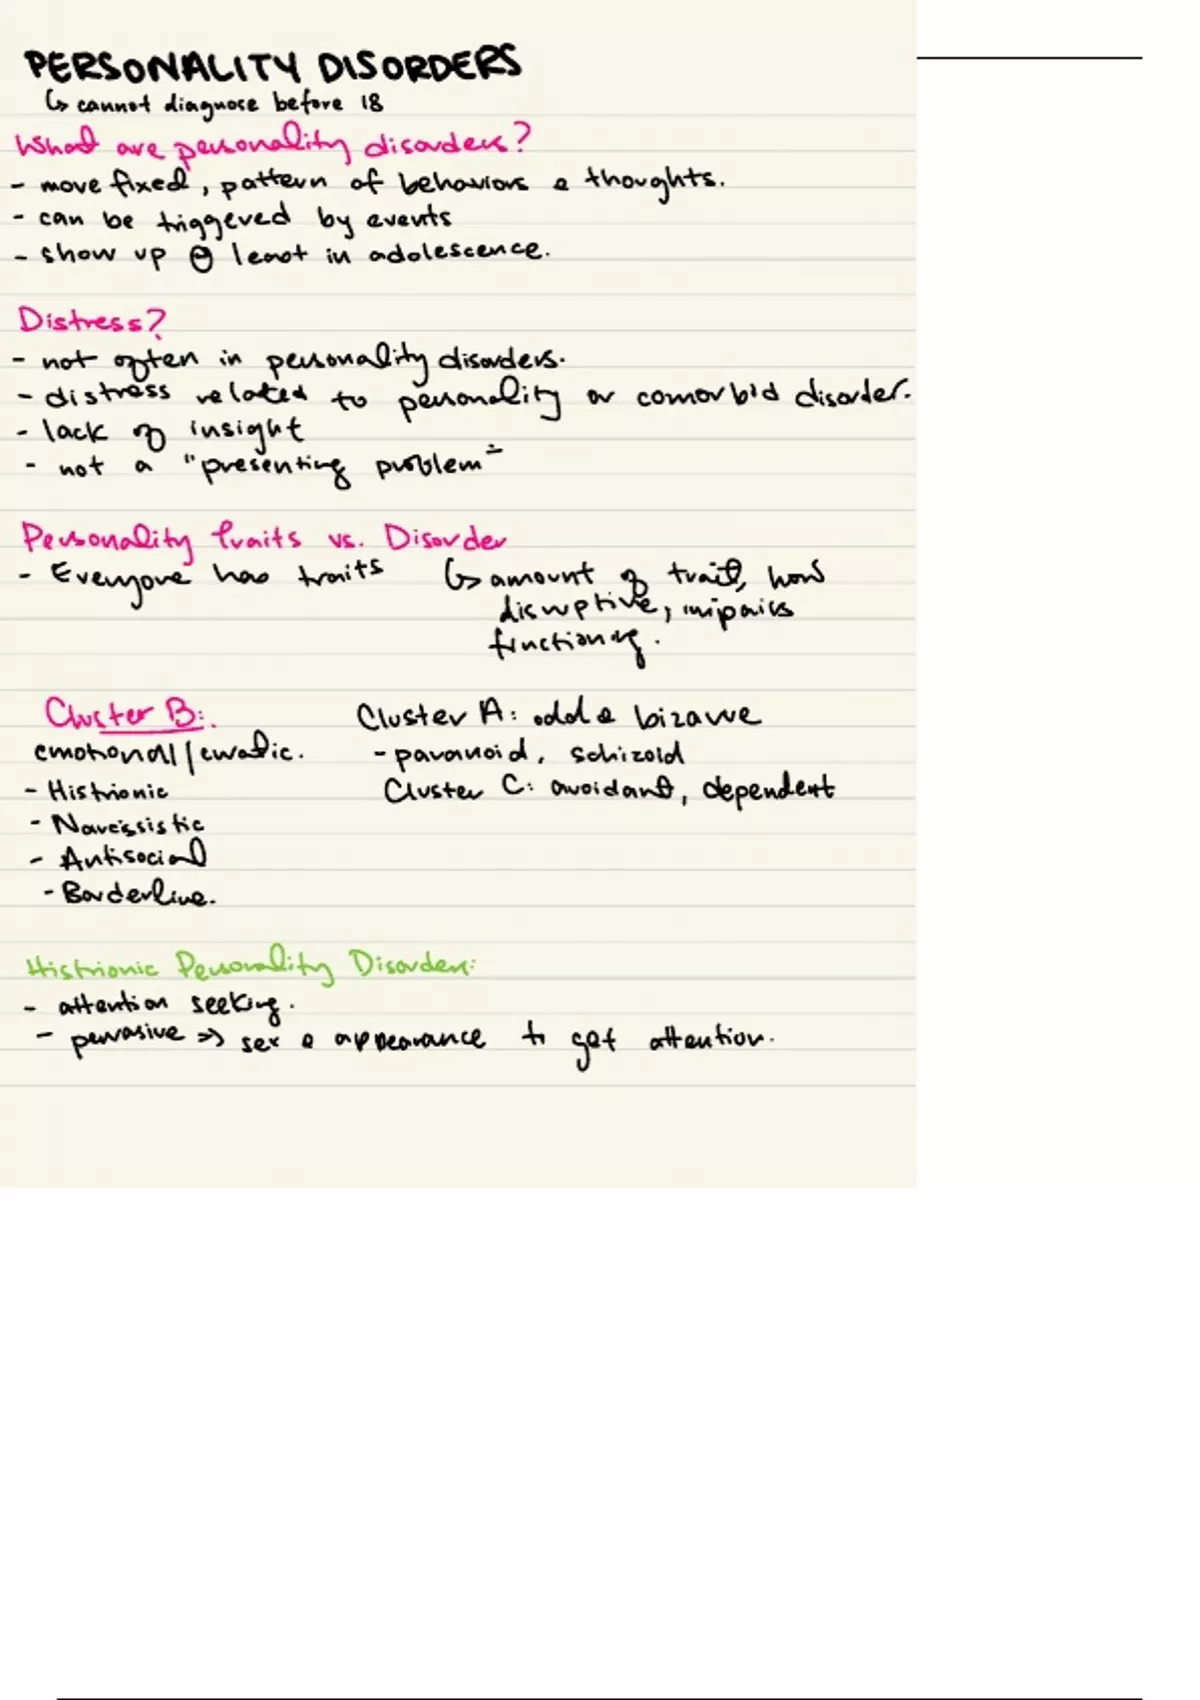 PERSONALITY DISORDERS
↳ cannot diagnose before 18
What are personality disorders?
- more fixed, pattern of behaviors & thoughts.
- can be triggered by events
- show up @ least in adolescence.
Distress?
- not often in personality disorders.
- distress related to personality or comorbid disorder.
- lack of insight
- not a "presenting problem"
Personality traits vs. Disorder
- Everyone has traits ↳ amount of trait, how
disruptive, impairs
functioning.
Cluster B:
emotional/erratic.
- Histrionic
- Narcissistic
- Antisocial
- Borderline.
Cluster A: odd & bizarre
- paranoid, schizoid
Cluster C: avoidant, dependent
Histrionic Personality Disorder:
- attention seeking.
- pervasive => sex & appearance to get attention.